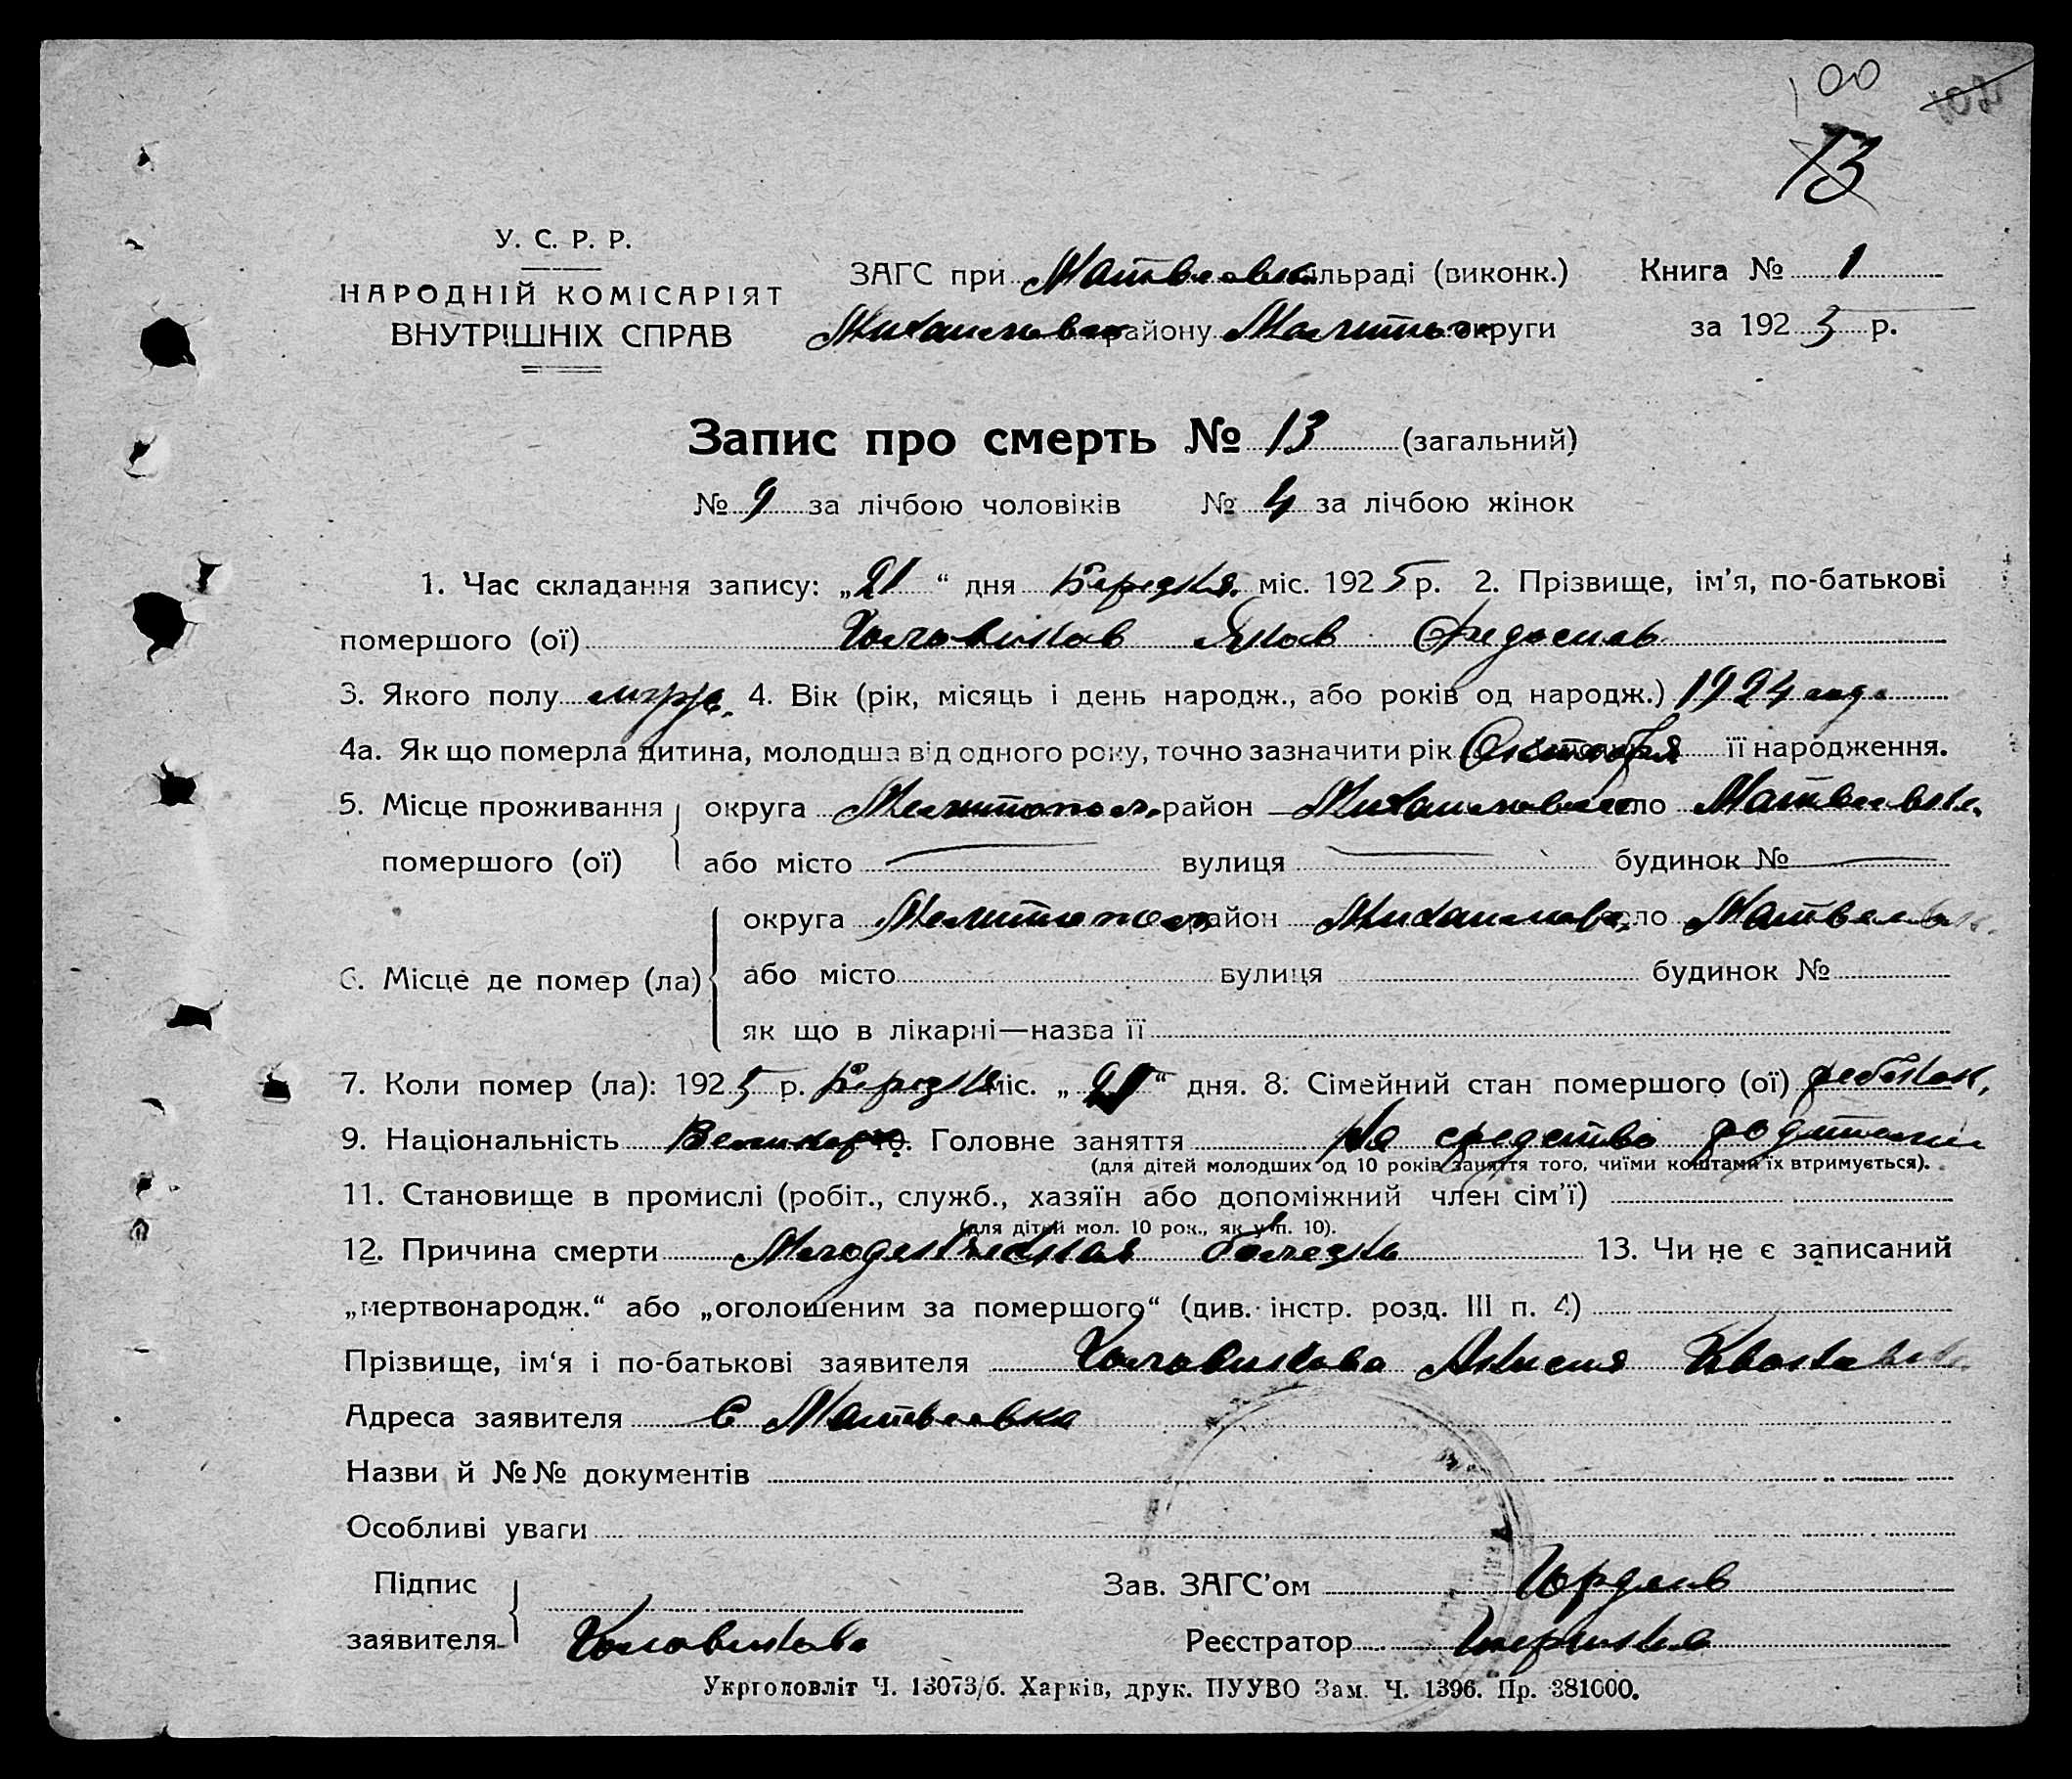 100
13
У. С. Р. Р.
НАРОДНІЙ КОМІСАРІЯТ
ВНУТРІШНІХ СПРАВ
ЗАГС при Матвеевск сільраді (виконк.) Книга № 1
Михайловск району Мелитоп округи за 1925 р.
Запис про смерть № 13 (загальний)
№ 9 за лічбою чоловіків № 4 за лічбою жінок
1. Час складання запису: „21“ дня Березня міс. 1925 р. 2. Прізвище, ім’я, по-батькові
помершого (ої) Головинов Яков
3. Якого полу 4. Вік (рік, місяць і день народж., або років од народж.) 1924 года
4а. Як що померла дитина, молодша від одного року, точно зазначити рік Октобря її народження.
5. Місце проживання округа Мелитопол. район Михайловск село Матвеевка
помершого (ої) або місто вулиця будинок №
округа Мелитопол район Михайловс. село Матвеевк
6. Місце де помер (ла) або місто вулиця будинок №
як що в лікарні—назва її
7. Коли помер (ла): 1925 р. Березня міс. „21“ дня. 8. Сімейний стан помершого (ої) ребенок
9. Національність Великор 10. Головне заняття На средства родители
(для дітей молодших од 10 років заняття того, чиїми коштами їх втримується).
11. Становище в промислі (робіт., служб., хазяїн або допоміжний член сім’ї)
(для дітей мол. 10 рок., як у п. 10).
12. Причина смерти Младенческая болезнь 13. Чи не є записаний
„мертвонародж.“ або „оголошеним за помершого“ (див. інстр. розд. III п. 4)
Прізвище, ім‘я і по-батькові заявителя Головинова Анисия
Адреса заявителя С Матвеевка
Назви й №№ документів
Особливі уваги
Підпис Зав. ЗАГС’ом Гордеев
заявителя Головинова Реєстратор
Укрголовліт Ч. 13073/б. Харків, друк. ПУУВО Зам. Ч. 1396. Пр. 381000.